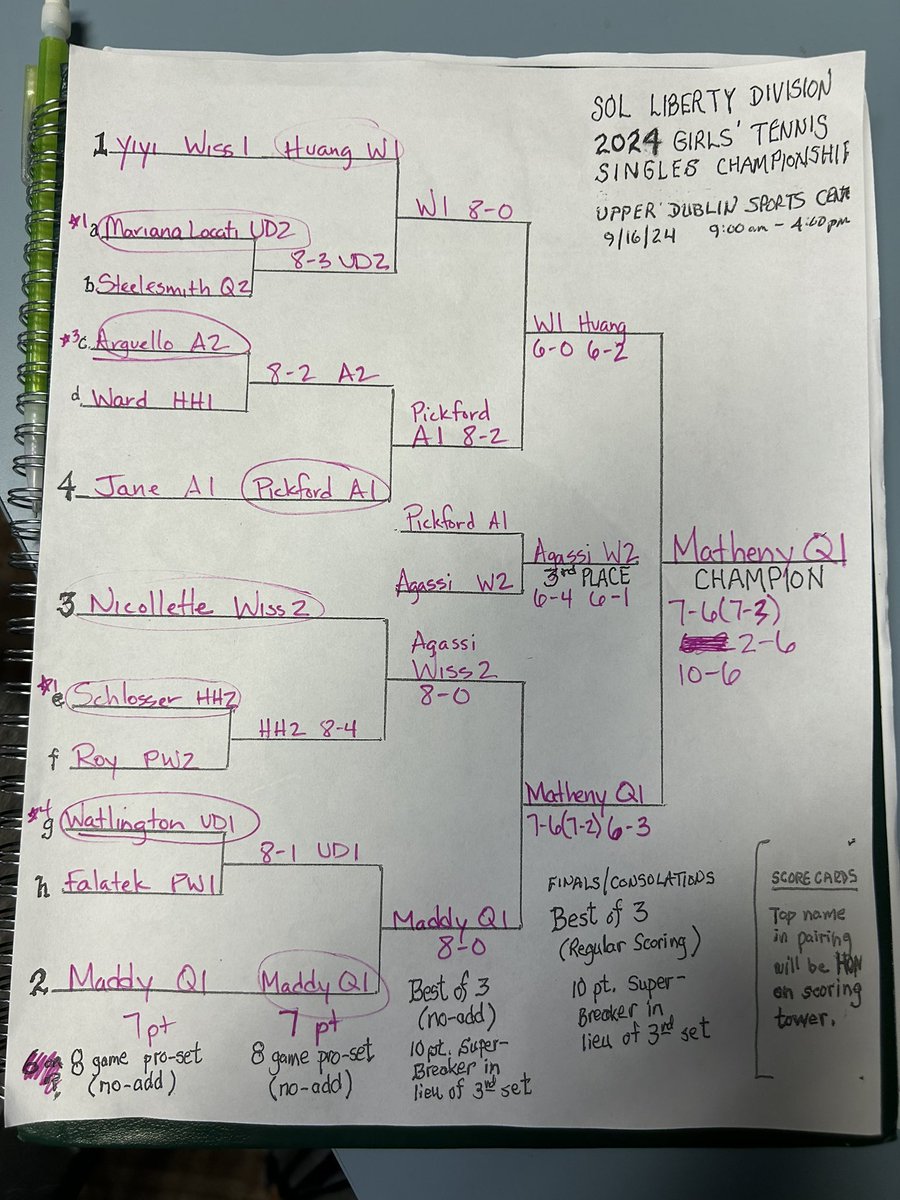 SOL LIBERTY DIVISION
2024 GIRLS' TENNIS
SINGLES CHAMPIONSHIP
UPPER DUBLIN SPORTS CENTE
9/16/24 9:00am - 4:00pm
1 Yiyi Wiss 1 Huang W1
W1 8-0
*1 a Mariana Locati UD2
8-3 UD2
b Steelesmith Q2
W1 Huang
6-0 6-2
*3 c. Arguello A2
8-2 A2
d. Ward HH1
Pickford
A1 8-2
4 Jane A1 Pickford A1
Pickford A1
Agassi W2
3rd PLACE
6-4 6-1
Agassi W2
Matheny Q1
CHAMPION
7-6(7-3)
2-6
10-6
3 Nicollette Wiss 2
Agassi
Wiss 2
8-0
*1 e Schlosser HH2
HH2 8-4
f Roy PW2
Matheny Q1
7-6(7-2) 6-3
*4 g Watlington UD1
8-1 UD1
h Falatek PW1
Maddy Q1
8-0
2 Maddy Q1 Maddy Q1
7pt
8 game pro-set
(no-add)
7 pt
8 game pro-set
(no-add)
Best of 3
(no-add)
10pt. Super-
Breaker in
lieu of 3rd set
FINALS/CONSOLATIONS
Best of 3
(Regular Scoring)
10 pt. Super-
Breaker in
lieu of 3rd set
SCORE CARDS
Top name
in pairing
will be
on scoring
tower.